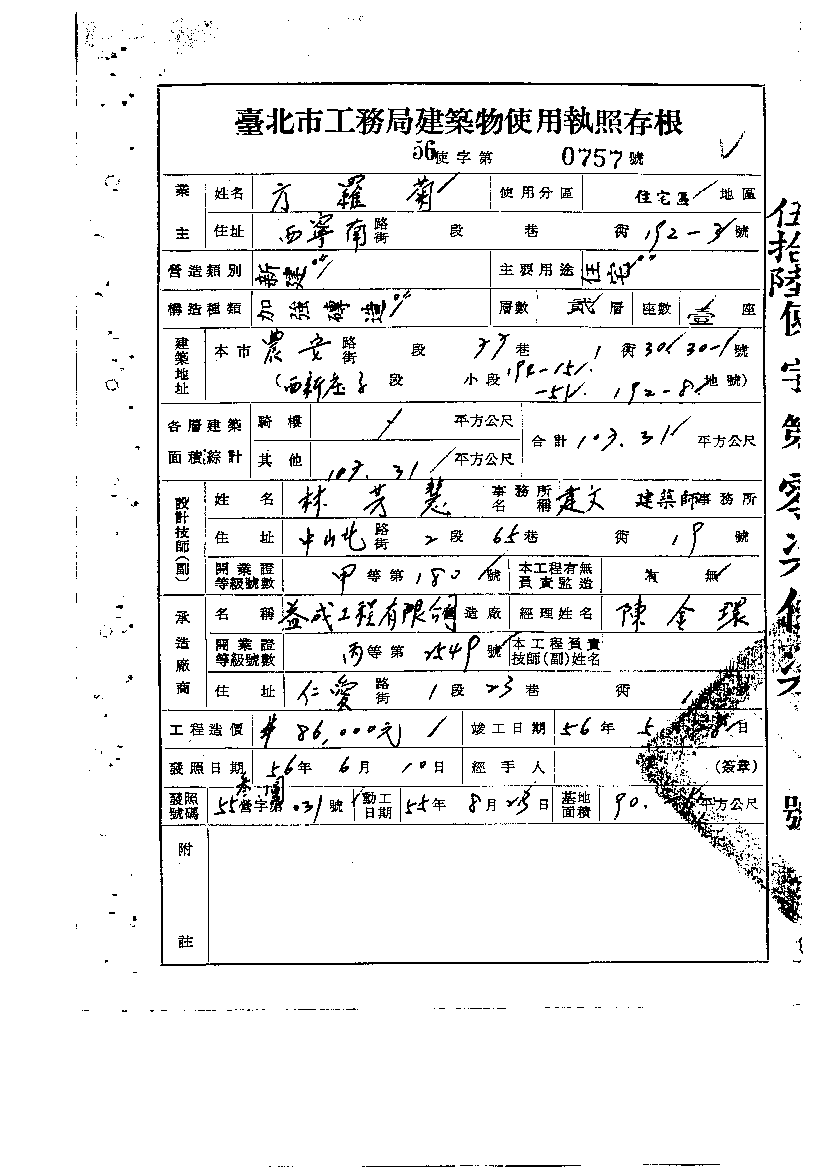 臺北市工務局建築物使用執照存根
56使字第 0757 號
業主 姓名 方羅菊 使用分區 住宅區 地區
住址 西寧南 路街 段 巷 衖 192-3 號
營造類別 新建 主要用途 住宅
構造種類 加強磚造 層數 貳 層 座數 座
建築地址 本市 農安 路街 段 77 巷 1 衖 30.30-1 號
(西新庄子 段 小段 192-15.
-51. 192-8. 地號)
各層建築面積綜計 騎樓 / 平方公尺 合計 103.31 平方公尺
其他 103.31 平方公尺
設計技師(副) 姓名 林芳慧 事務所名稱 建文 建築師事務所
住址 中山北 路街 2 段 65 巷 衖 19 號
開業證等級號數 甲 等第 180 號 本工程有無負責監造 有 無
承造廠商 名稱 益成工程有限公司 造廠 經理姓名 陳金環
開業證等級號數 丙 等第 2549 號 本工程負責技師(副)姓名
住址 仁愛 路街 1 段 23 巷 衖 號
工程造價 # 86,000元 竣工日期 56 年 5 日
發照日期 56 年 6 月 10 日 經手人 (簽章)
發照號碼 55 營字第 031 號 動工日期 55 年 8 月 23 日 基地面積 90. 平方公尺
附註
伍拾陸使字第零 號